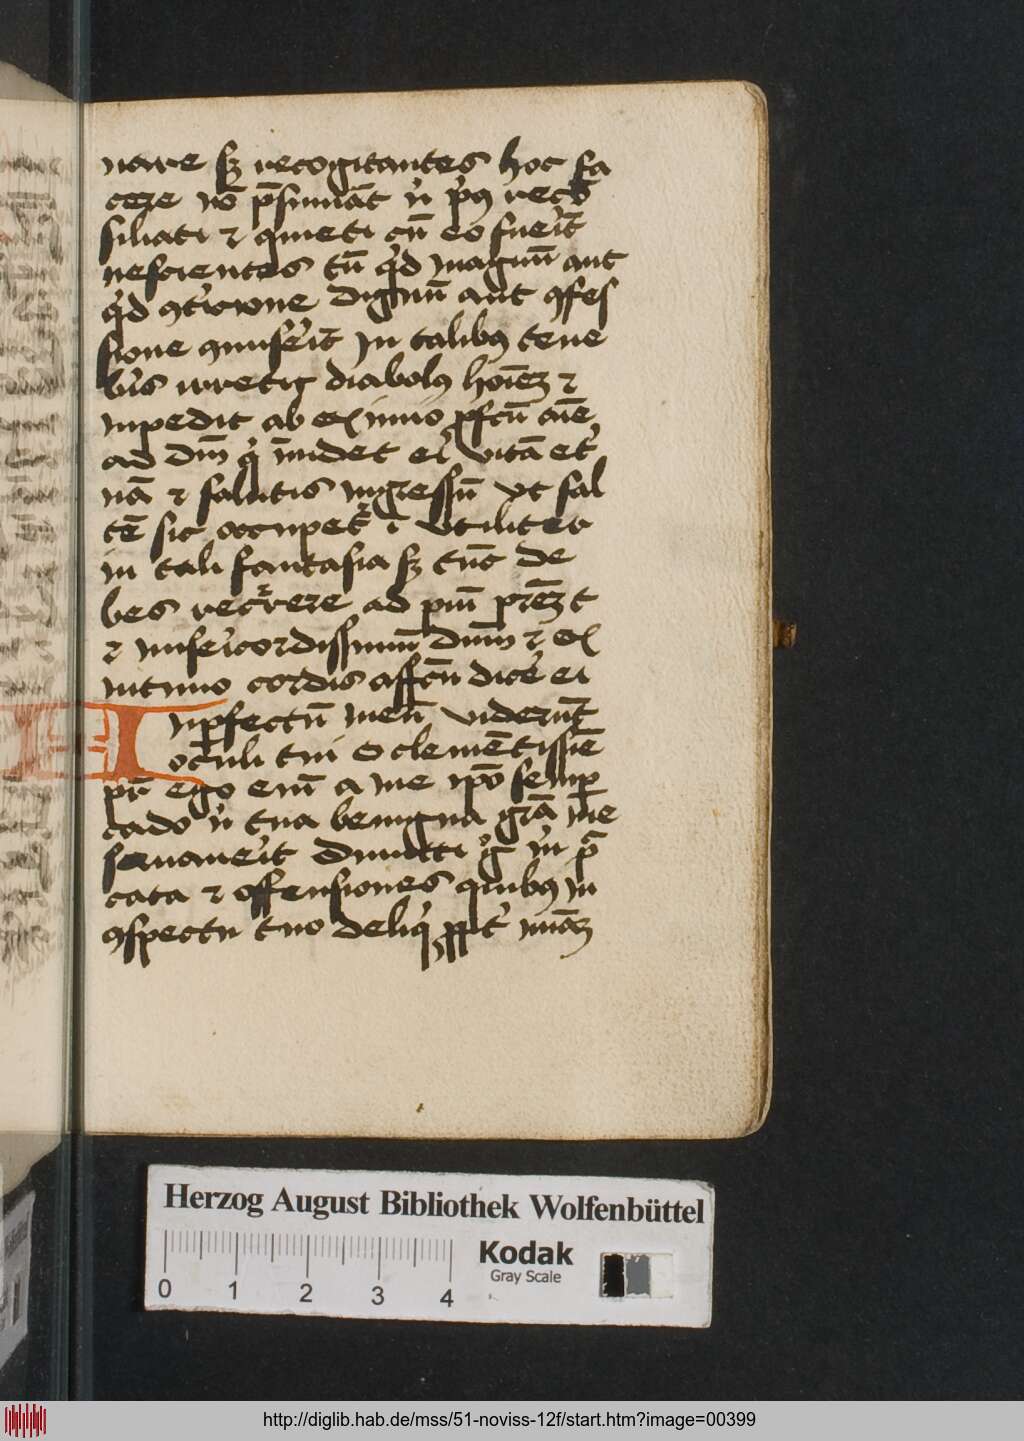 nare sꝫ recogitantes hoc fa
cere nō p̄sumāt n̓ p̓us reco̅
siliati ⁊ quieti cū eo fuerīt
nescientes tn̄ q̓d magnū aut
q̓d ꝯt̓cione dignū aut ꝯfes
sione ꝯmiserīt In talibꝰ tene
br̓is irretit diabolꝰ hoīeꝫ ⁊
inpedit ab eximio ꝓfcū
ad dn̄m q̓ īnidet ei vitā et̓
nā ⁊ salutis ingressū vt sal
tē sic occupet᷑ ī vtiliter
in tali fantasia sꝫ tūc de
bes recr̓rere ad piū pr̄eꝫ t
⁊ mise̓icordissimū dn̄m ⁊ ex
intimo cordis affcū dice̓ ei
Inꝑfectū meū viderūt
oculi tui O clemētissīe
pr̄ ego eni̅ a me ip̄o semꝑ
cado n̓ tua benigna grā me
seruaue̓it Dimitte g̓ m̓ pc̄
cata ⁊ offensiones quibꝰ in
ꝯspectu tuo deliq̓ ꝓpt̓ mīaꝫ
Herzog August Bibliothek Wolfenbüttel
Kodak
Gray Scale
0 1 2 3 4
http://diglib.hab.de/mss/51-noviss-12f/start.htm?image=00399